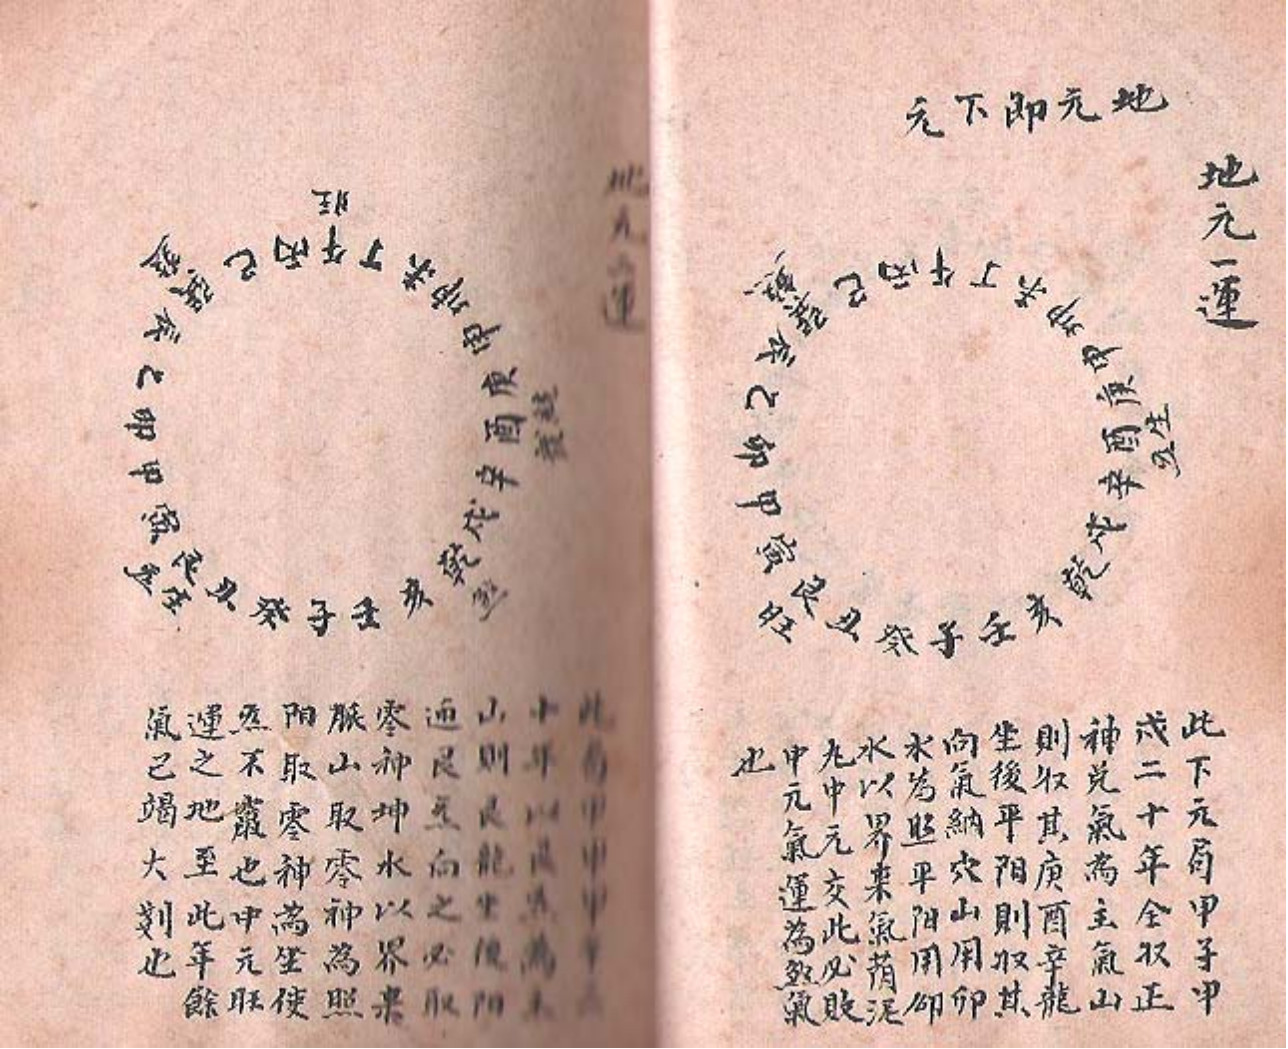 地元即下元
地元一運
巳丙午丁未坤申庚酉辛戌乾亥壬子癸丑艮寅甲卯乙辰巽
生
旺
此下元局甲子甲
戌二十年全収正
神兌氣為主氣山
則収其庚酉辛龍
坐後平陽則収其
向氣納穴山用卯
水為照平陽用卯
水以界来氣苟泥
九中元交此必敗
中元氣運為煞氣
也
地元二運
旺
巳丙午丁未坤申庚酉辛戌乾亥壬子癸丑艮寅甲卯乙辰巽
煞
生
此局甲申甲午
十年以艮為主
山則艮龍坐後陽
迊艮炁向之必取
零神坤水以界来
脈山取零神為照
陽取零神為坐使
炁不叢也中元旺
運之地至此年餘
氣已竭大剝也